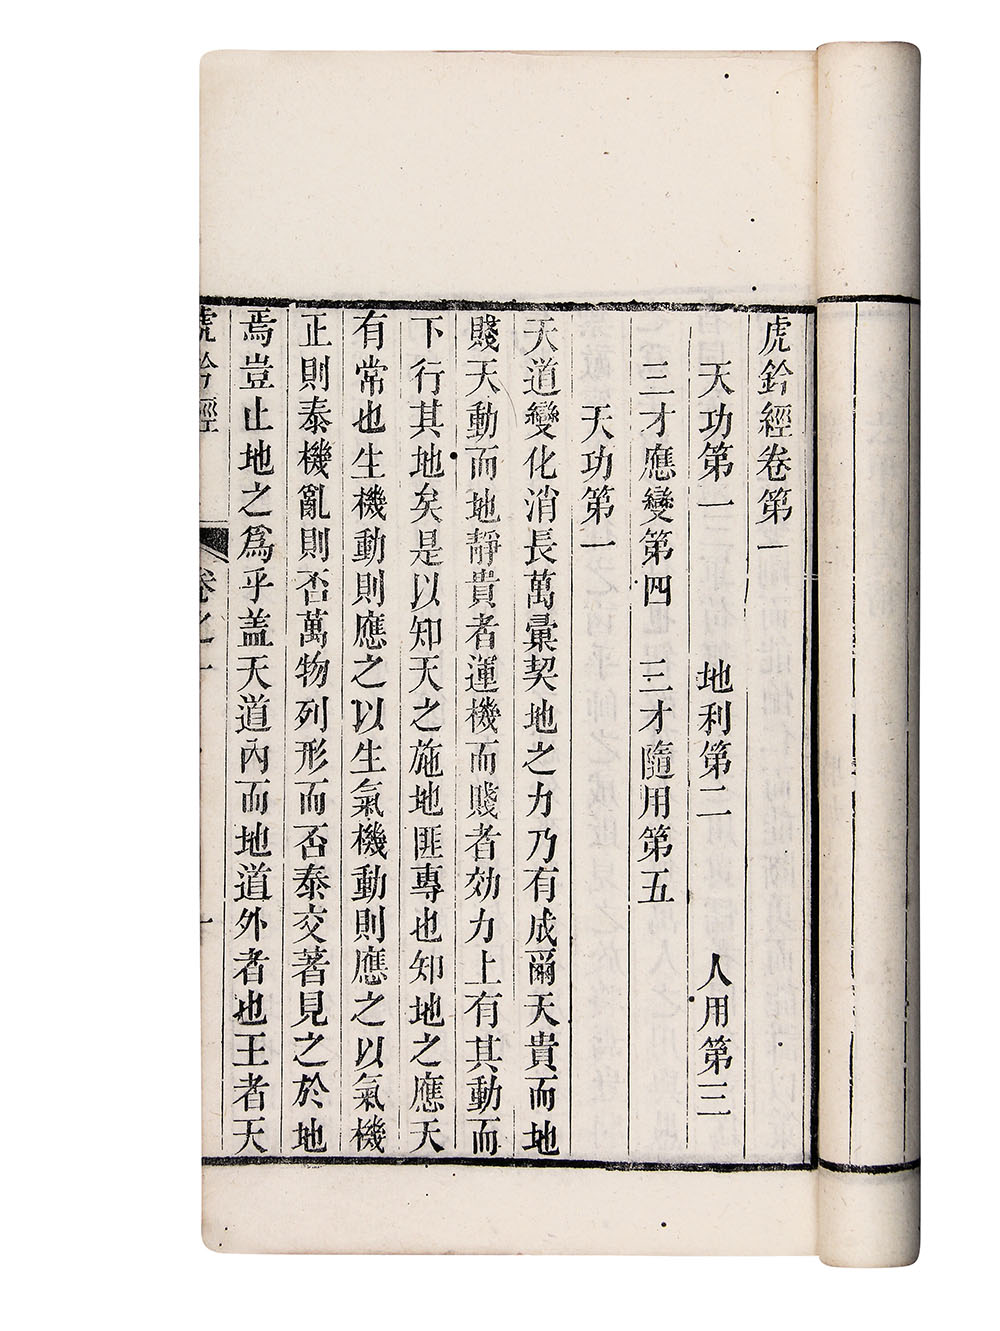 虎鈐經卷第一
天功第一 地利第二 人用第三
三才應變第四 三才隨用第五
天功第一
天道變化消長萬彙契地之力乃有成爾天貴而地
賤天動而地靜貴者運機而賤者効力上有其動而
下行其地矣是以知天之施地匪專也知地之應天
有常也生機動則應之以生氣機動則應之以氣機
正則泰機亂則否萬物列形而否泰交著見之於地
焉豈止地之爲乎盖天道內而地道外者也王者天
虎鈐經 卷之一 一